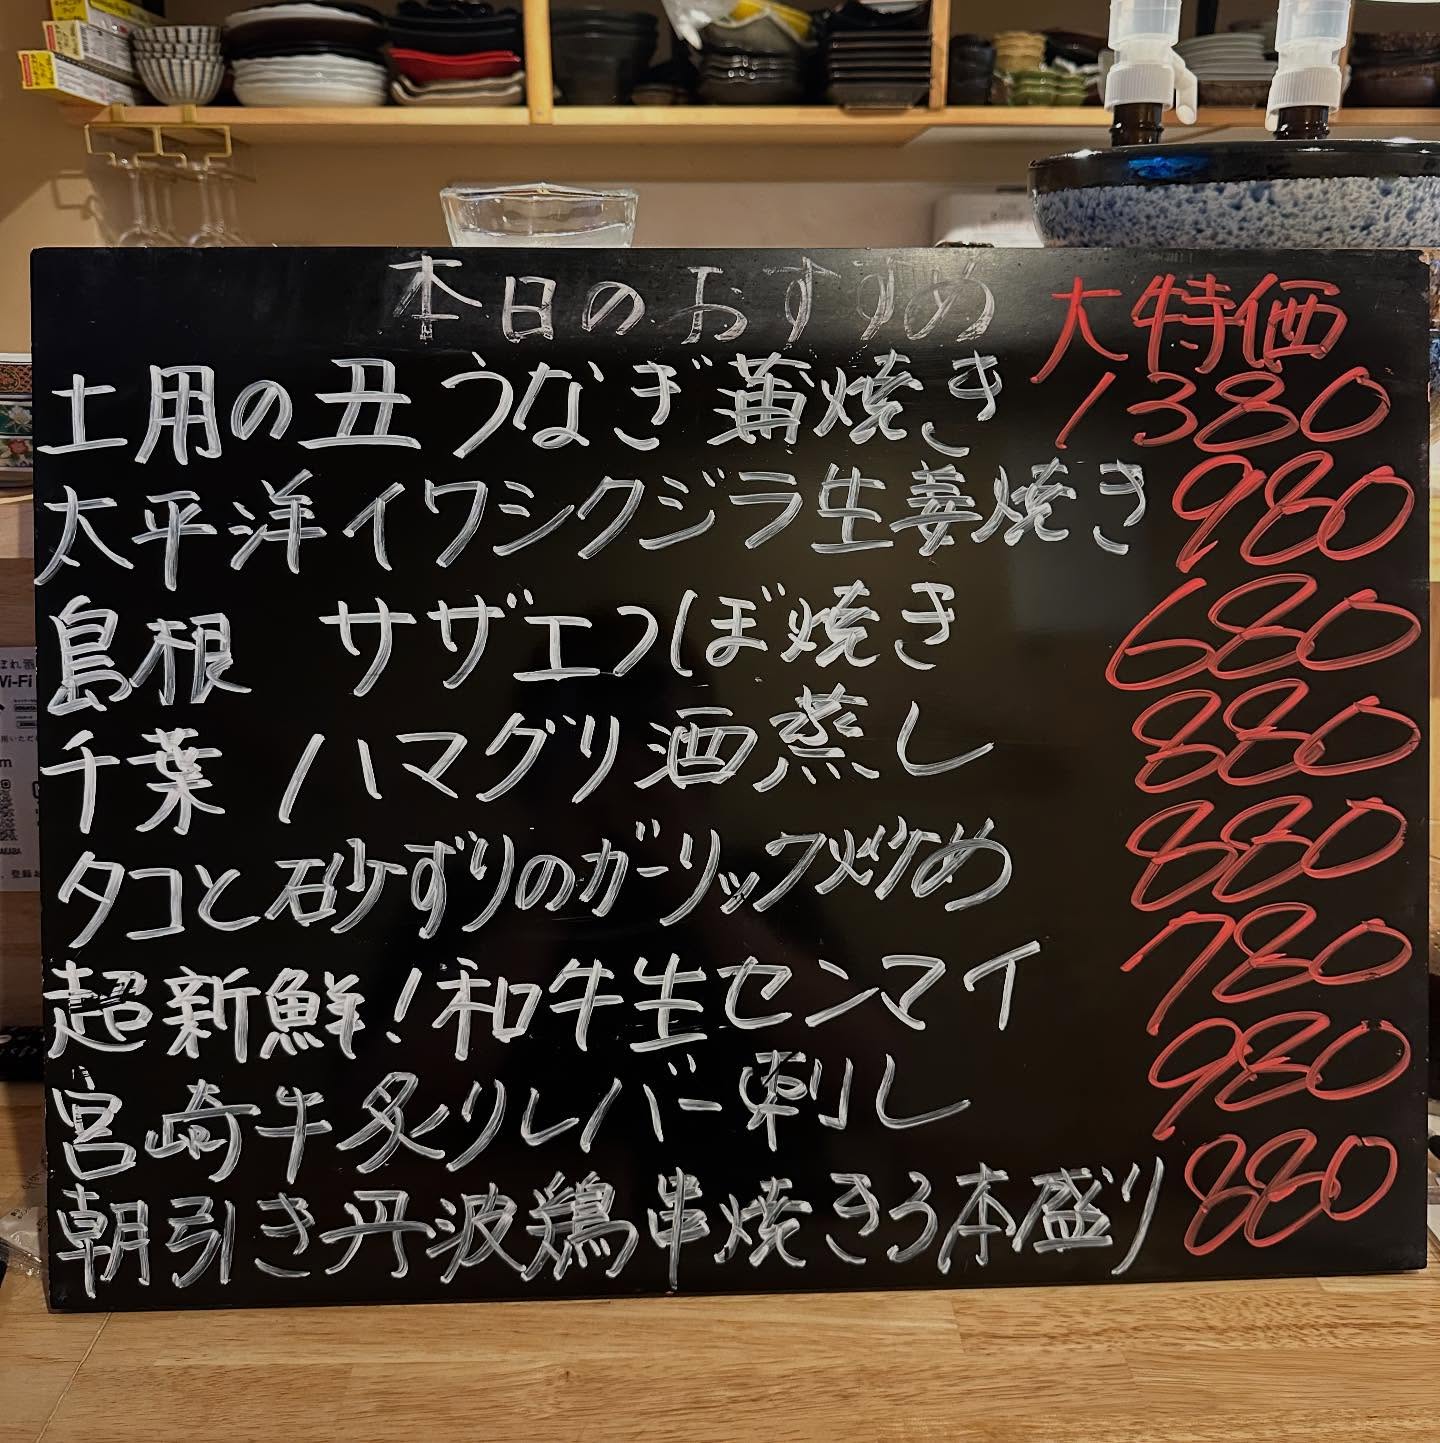 本日のおすすめ
大特価
土用の丑うなぎ蒲焼き 1380
太平洋イワシクジラ生姜焼き 980
島根 サザエつぼ焼き 680
千葉 ハマグリ酒蒸し 880
タコと砂ずりのガーリック炒め 880
超新鮮!和牛生センマイ 780
宮崎牛炙りレバー刺し 980
朝引き丹波鶏串焼き3本盛り 880
Wi-Fi